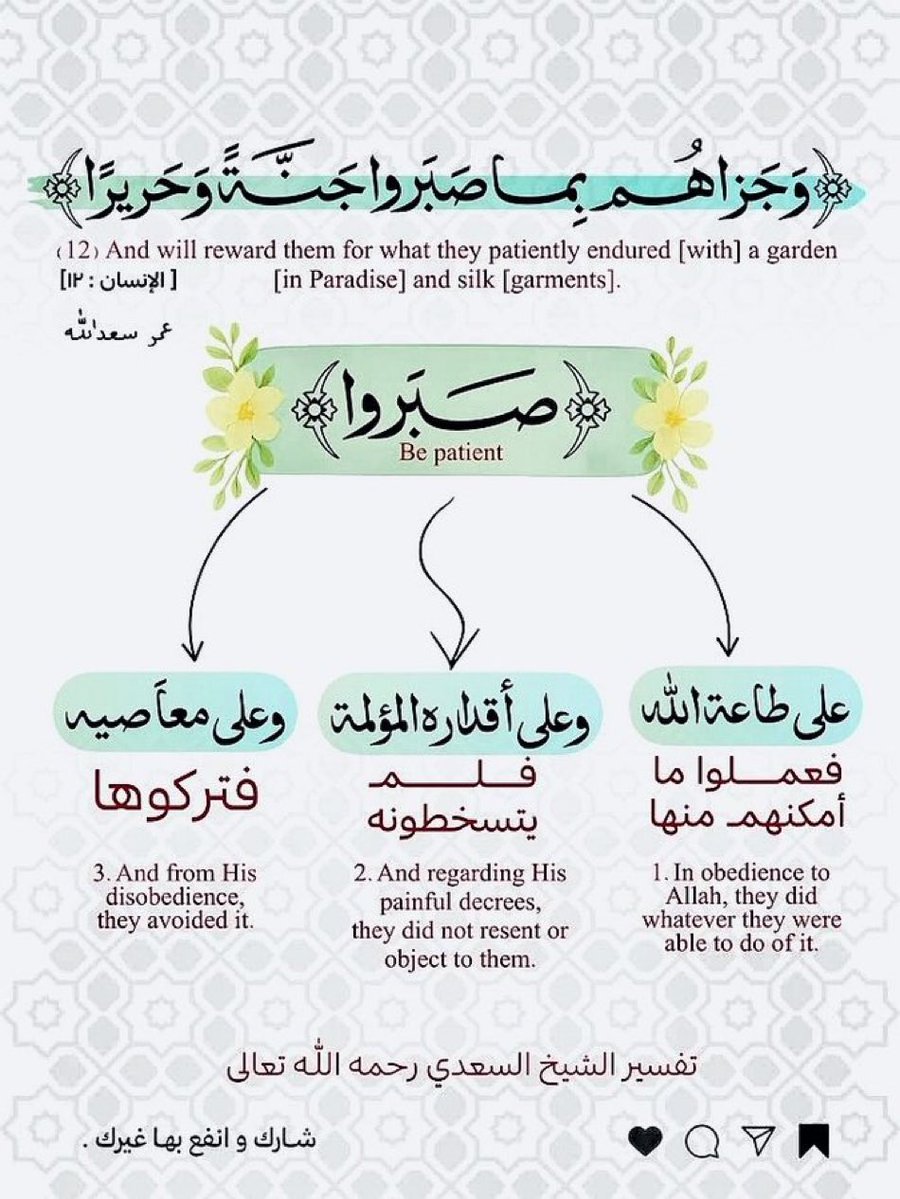 ﴿وَجَزَاهُم بِمَا صَبَرُوا جَنَّةً وَحَرِيرًا﴾
(12) And will reward them for what they patiently endured [with] a garden
[in Paradise] and silk [garments].
[ الإنسان : ١٢]
عمر سعدالله
﴿صَبَرُوا﴾
Be patient
على طاعة الله
فعملوا ما
أمكنهم منها
1. In obedience to
Allah, they did
whatever they were
able to do of it.
وعلى أقداره المؤلمة
فلم
يتسخطونه
2. And regarding His
painful decrees,
they did not resent or
object to them.
وعلى معاَصيه
فتركوها
3. And from His
disobedience,
they avoided it.
تفسير الشيخ السعدي رحمه الله تعالى
شارك و انفع بها غيرك .